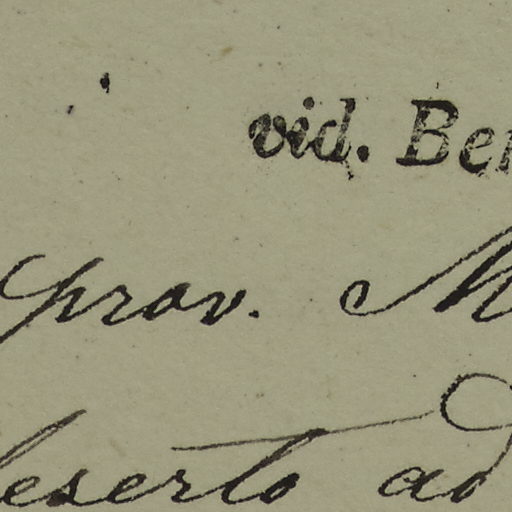 vid. Ber
prov. M
deserto ad